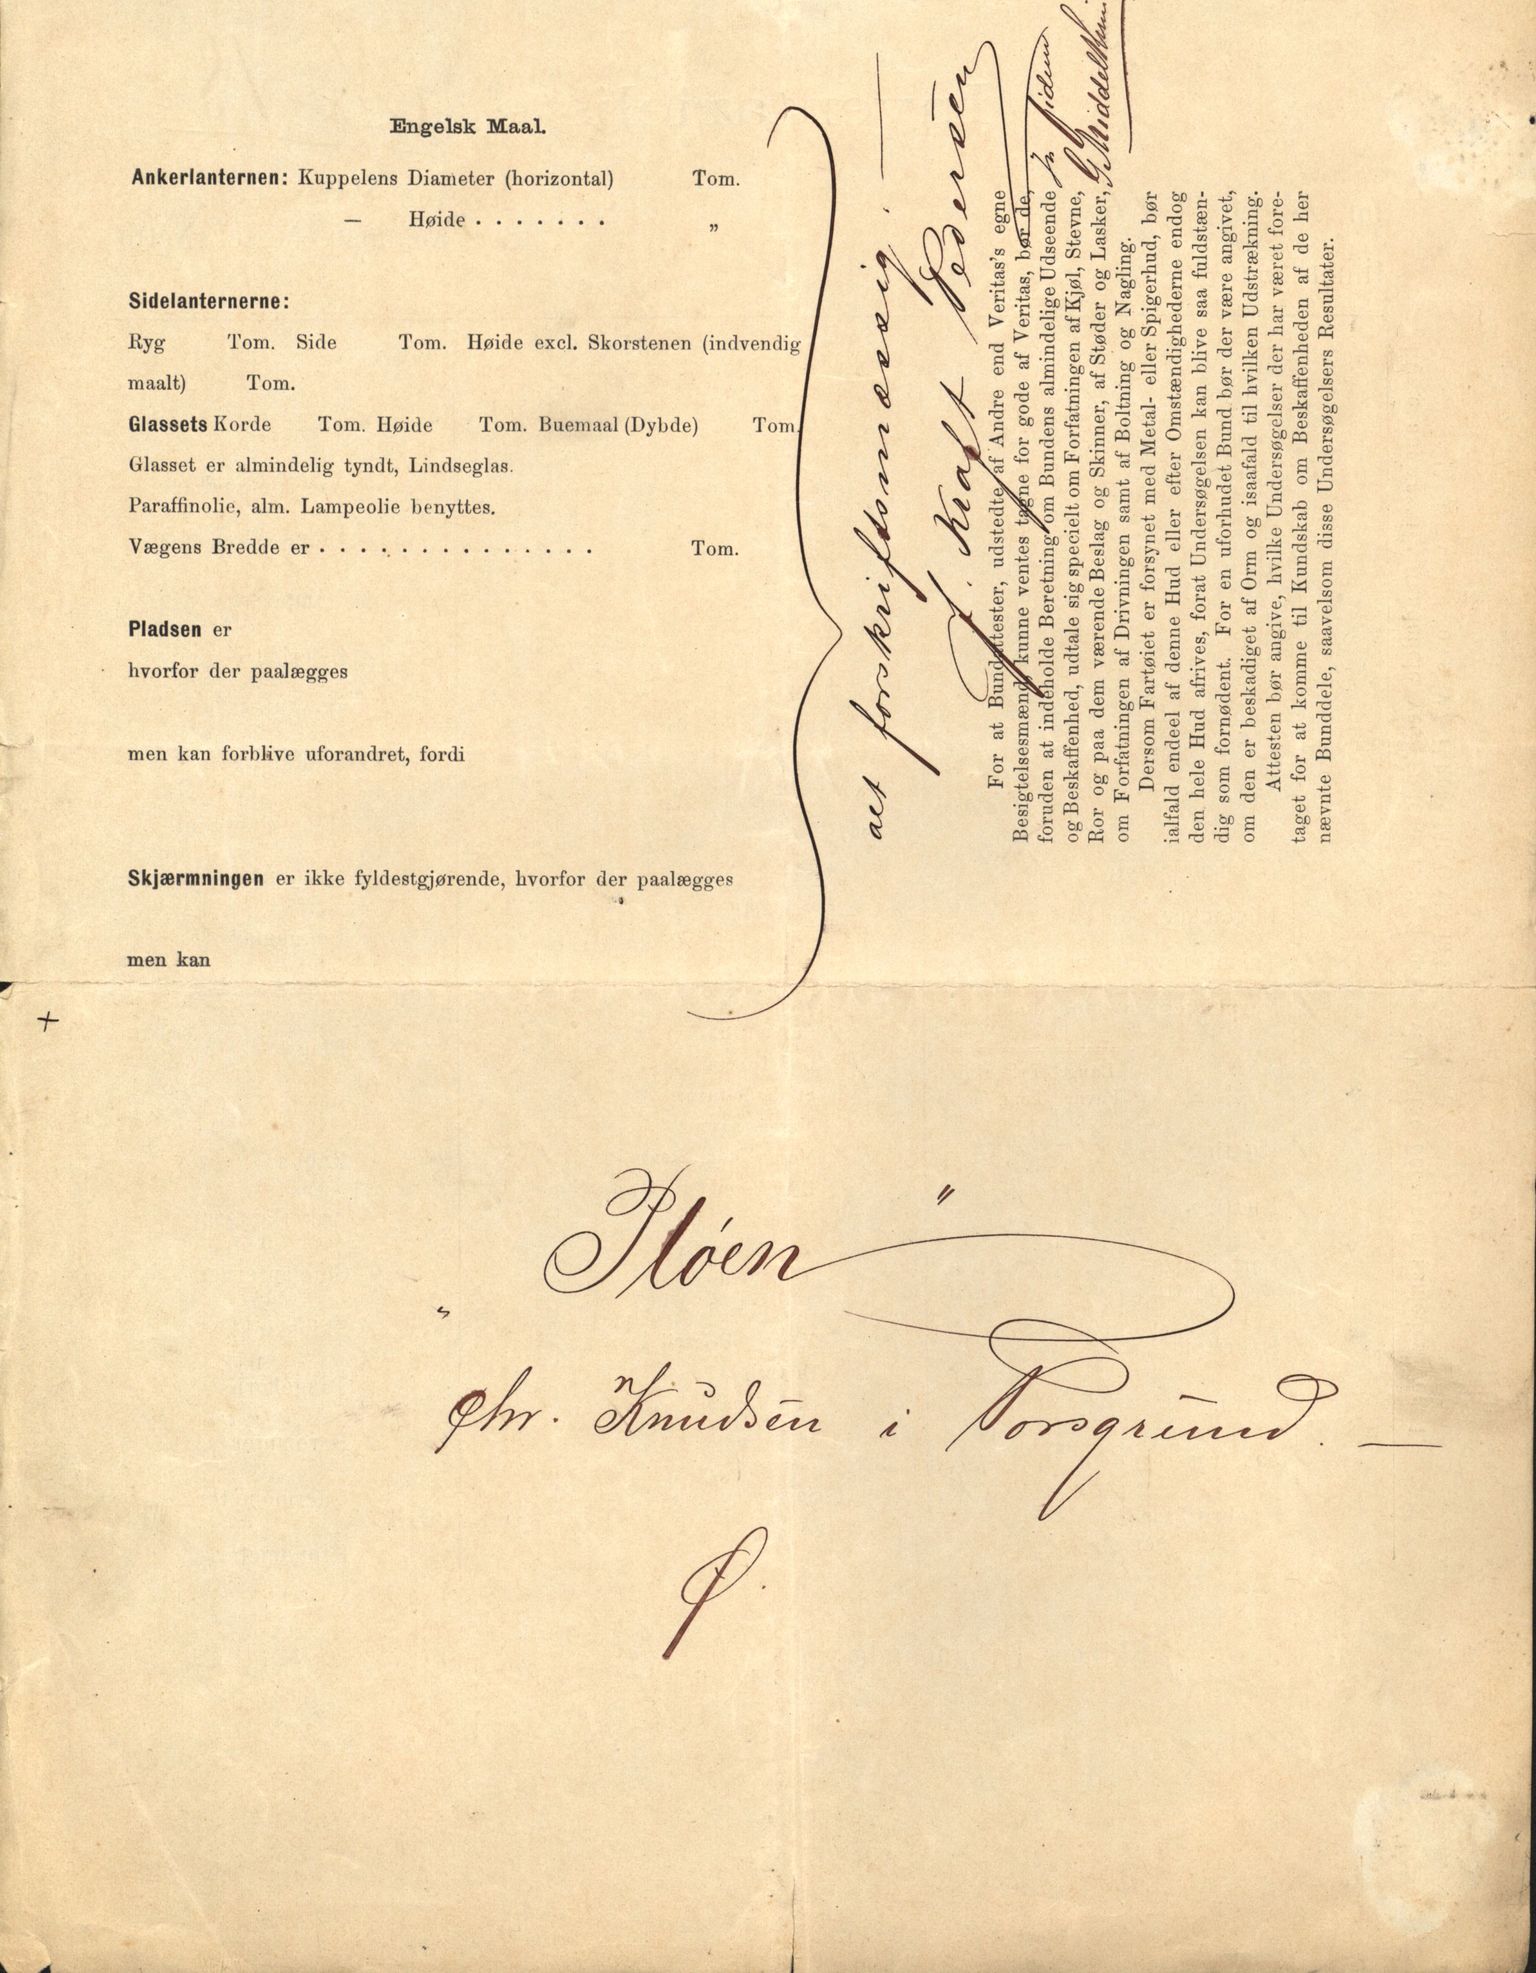 Engelsk Maal.
Ankerlanternen: Kuppelens Diameter (horizontal) Tom.
— Høide . . . . . . . „
Sidelanternerne:
Ryg Tom. Side Tom. Høide excl. Skorstenen (indvendig
maalt) Tom.
Glassets Korde Tom. Høide Tom. Buemaal (Dybde) Tom.
Glasset er almindelig tyndt, Lindseglas.
Paraffinolie, alm. Lampeolie benyttes.
Vægens Bredde er . . . . . . . . . . . . . . Tom.
Pladsen er
hvorfor der paalægges
men kan forblive uforandret, fordi
Skjærmningen er ikke fyldestgjørende, hvorfor der paalægges
men kan
alt forskriftsmæssig. —
J. Kraft Pedersen
For at Bundattester, udstedte af Andre end Veritas's egne
Besigtelsesmænd, kunne ventes tagne for gode af Veritas, bør de,
foruden at indeholde Beretning om Bundens almindelige Udseende
og Beskaffenhed, udtale sig specielt om Forfatningen af Kjøl, Stevne,
Ror og paa dem værende Beslag og Skinner, af Støder og Lasker,
om Forfatningen af Drivningen samt af Boltning og Nagling.
Dersom Fartøiet er forsynet med Metal- eller Spigerhud, bør
ialfald endeel af denne Hud eller efter Omstændighederne endog
den hele Hud afrives, forat Undersøgelsen kan blive saa fuldstæn-
dig som fornødent. For en uforhudet Bund bør der være angivet,
om den er beskadiget af Orm og isaafald til hvilken Udstrækning.
Attesten bør angive, hvilke Undersøgelser der har været fore-
taget for at komme til Kundskab om Beskaffenheden af de her
nævnte Bunddele, saavelsom disse Undersøgelsers Resultater.
+
„Pløen"
Chr. Knudsen i Porsgrund. —
Ø.